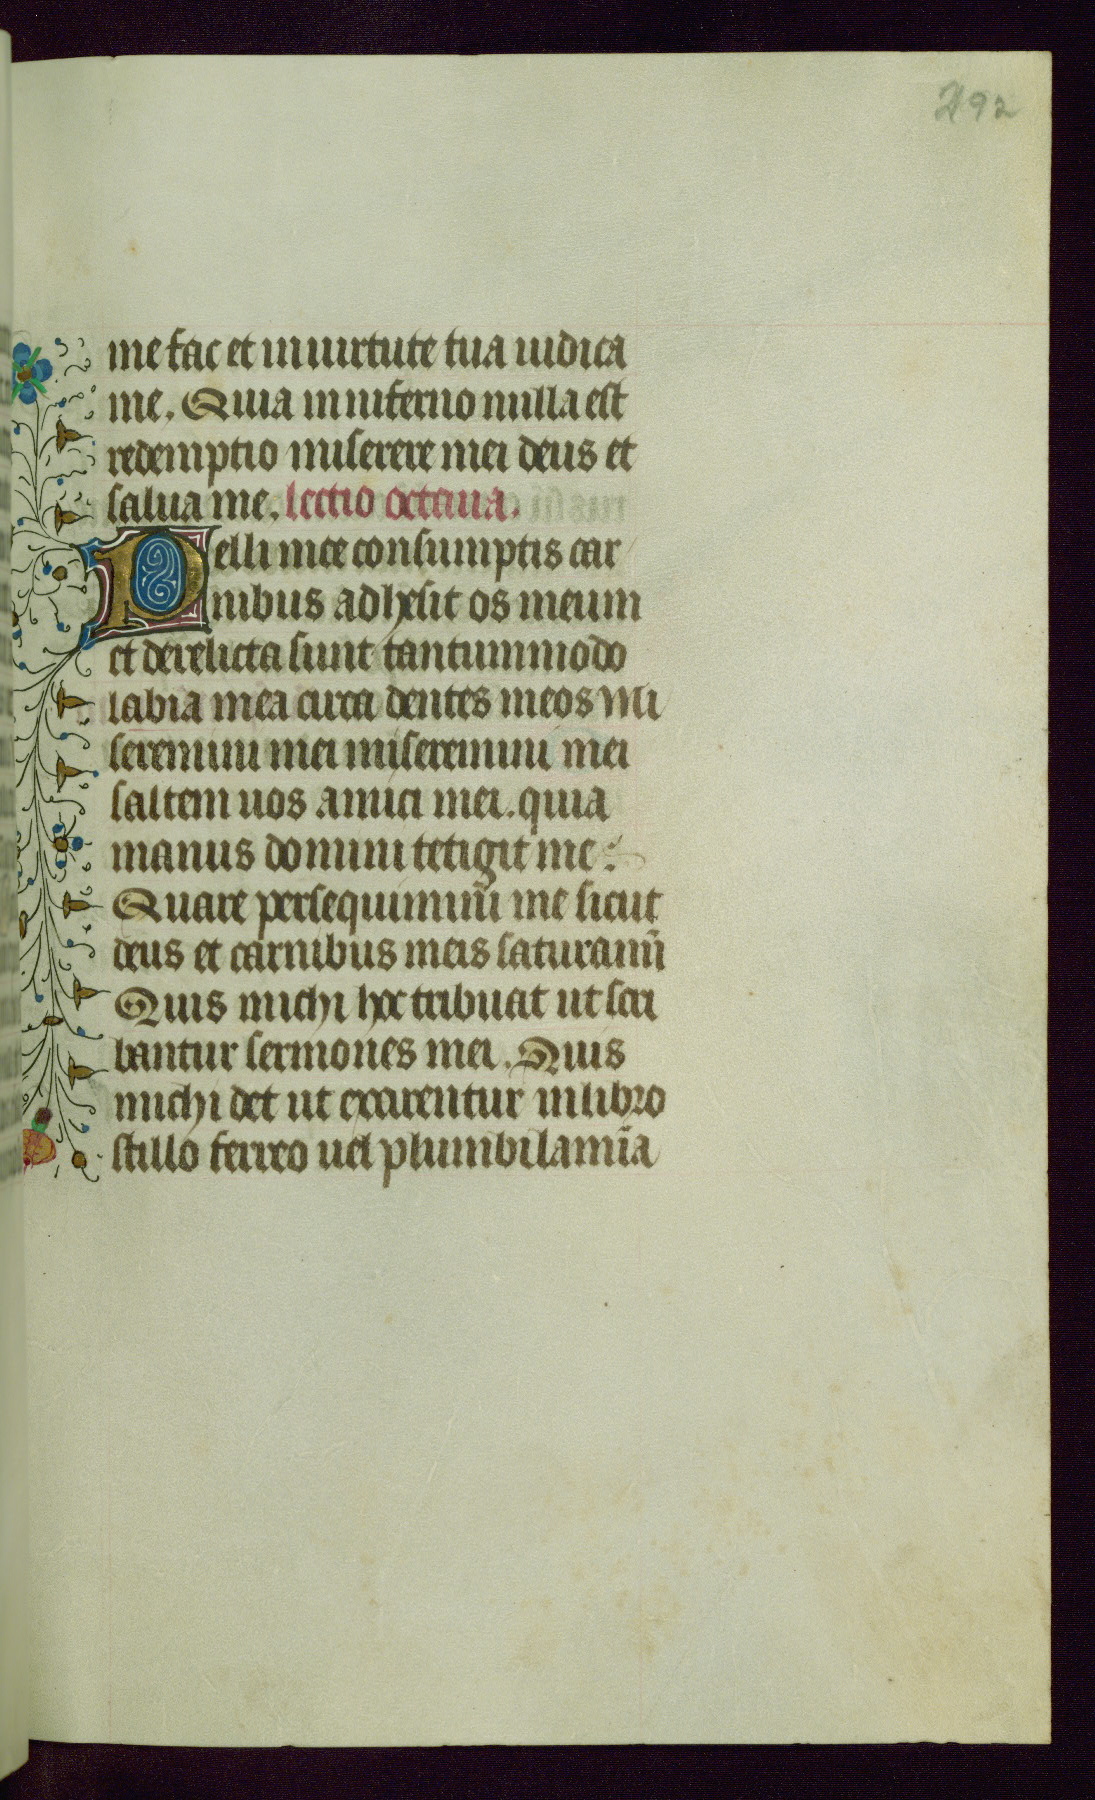 292
me fac et in uirtute tua iudica
me. Quia in inferno nulla est
redemptio miserere mei deus et
salua me. lectio octaua.
Pelli mee consumptis car
nibus adhesit os meum
et derelicta sunt tantummodo
labia mea circa dentes meos Mi
seremini mei miseremini mei
saltem uos amici mei. quia
manus domini tetigit me:
Quare persequimini me sicut
deus et carnibus meis saturamĩ
Quis michi hoc tribuat ut scri
bantur sermones mei. Quis
michi det ut exarentur in libro
stillo ferreo uel plumbi lamĩa